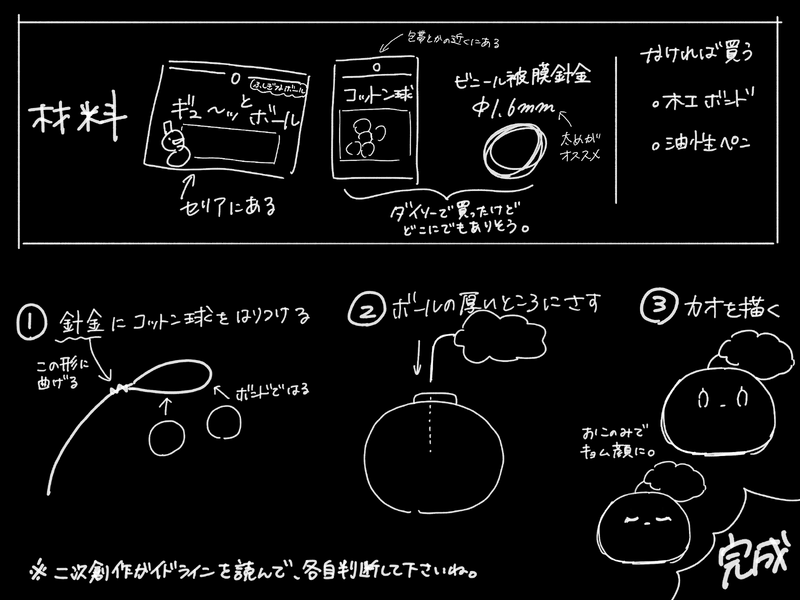 材料
ふしぎなボール
ギュ〜ッ
と
ボール
セリアにある
包帯とかの近くにある
コットン球
ビニール被膜針金
Φ1.6mm
太めが
オススメ
ダイソーで買ったけど
どこにでもありそう。
なければ買う
。木工ボンド
。油性ペン
① 針金にコットン球をはりつける
この形に
曲げる
ボンドではる
② ボールの厚いところにさす
③ カオを描く
おこのみで
キョム顔に。
完成
※ 二次創作ガイドラインを読んで、各自判断して下さいね。